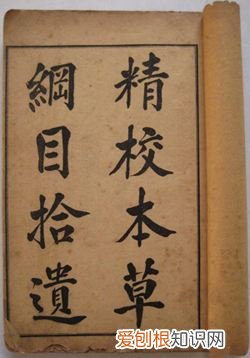 精校本草
綱目拾遺
爱刨根知识网